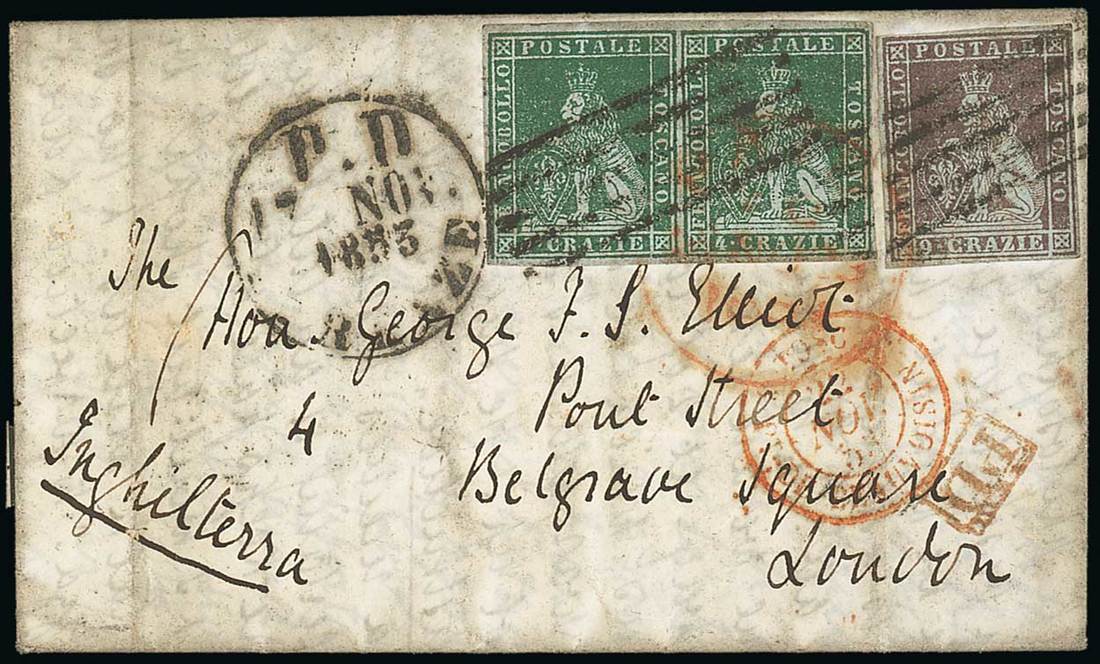 POSTALE POSTALE POSTALE
FRANCOBOLLO TOSCANO FRANCOBOLLO TOSCANO FRANCOBOLLO TOSCANO
CRAZIE 4 CRAZIE 9 CRAZIE
P.D
NOV.
1853
The
Hon. George F. S. Elliot
4 Pont Street
Belgrave Square
London
Inghilterra
NOV.
P.D.